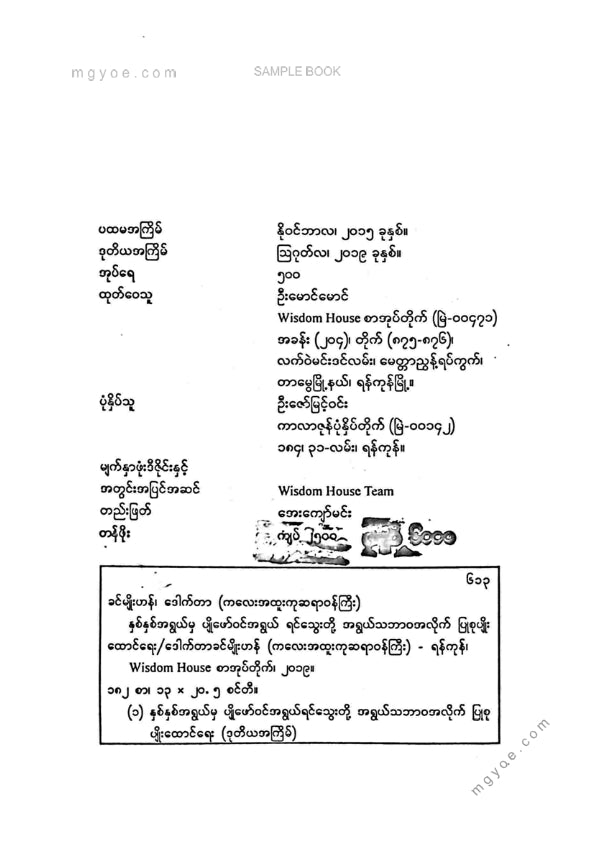 mgyoe.com SAMPLE BOOK
ပထမအကြိမ် နိုဝင်ဘာလ၊ ၂၀၁၅ ခုနှစ်။
ဒုတိယအကြိမ် ဩဂုတ်လ၊ ၂၀၁၉ ခုနှစ်။
အုပ်ရေ ၅၀၀
ထုတ်ဝေသူ ဦးမောင်မောင်
Wisdom House စာအုပ်တိုက် (မြဲ-၀၀၄၇၁)
အခန်း (၂၀၄)၊ တိုက် (၈၇၅-၈၇၆)၊
လက်ဝဲမင်းဒင်လမ်း၊ မေတ္တာညွှန့်ရပ်ကွက်၊
တာမွေမြို့နယ်၊ ရန်ကုန်မြို့။
ပုံနှိပ်သူ ဦးဇော်မြင့်ဝင်း
ကာလာဇုန်ပုံနှိပ်တိုက် (မြဲ-၀၀၁၄၂)
၁၈၄၊ ၃၁-လမ်း၊ ရန်ကုန်။
မျက်နှာဖုံးဒီဇိုင်းနှင့်
အတွင်းအပြင်အဆင် Wisdom House Team
တည်းဖြတ် အေးကျော်မင်း
တန်ဖိုး ကျပ် ၂၅၀၀
၆၁၃
ခင်မျိုးဟန်၊ ဒေါက်တာ (ကလေးအထူးကုဆရာဝန်ကြီး)
နှစ်နှစ်အရွယ်မှ ပျိုဖော်ဝင်အရွယ် ရင်သွေးတို့ အရွယ်သဘာဝအလိုက် ပြုစုပျိုး
ထောင်ရေး/ဒေါက်တာခင်မျိုးဟန် (ကလေးအထူးကုဆရာဝန်ကြီး) - ရန်ကုန်၊
Wisdom House စာအုပ်တိုက်၊ ၂၀၁၉။
၁၈၂ စာ၊ ၁၃ × ၂၀.၅ စင်တီ။
(၁) နှစ်နှစ်အရွယ်မှ ပျိုဖော်ဝင်အရွယ်ရင်သွေးတို့ အရွယ်သဘာဝအလိုက် ပြုစု
ပျိုးထောင်ရေး (ဒုတိယအကြိမ်)
mgyoe.com